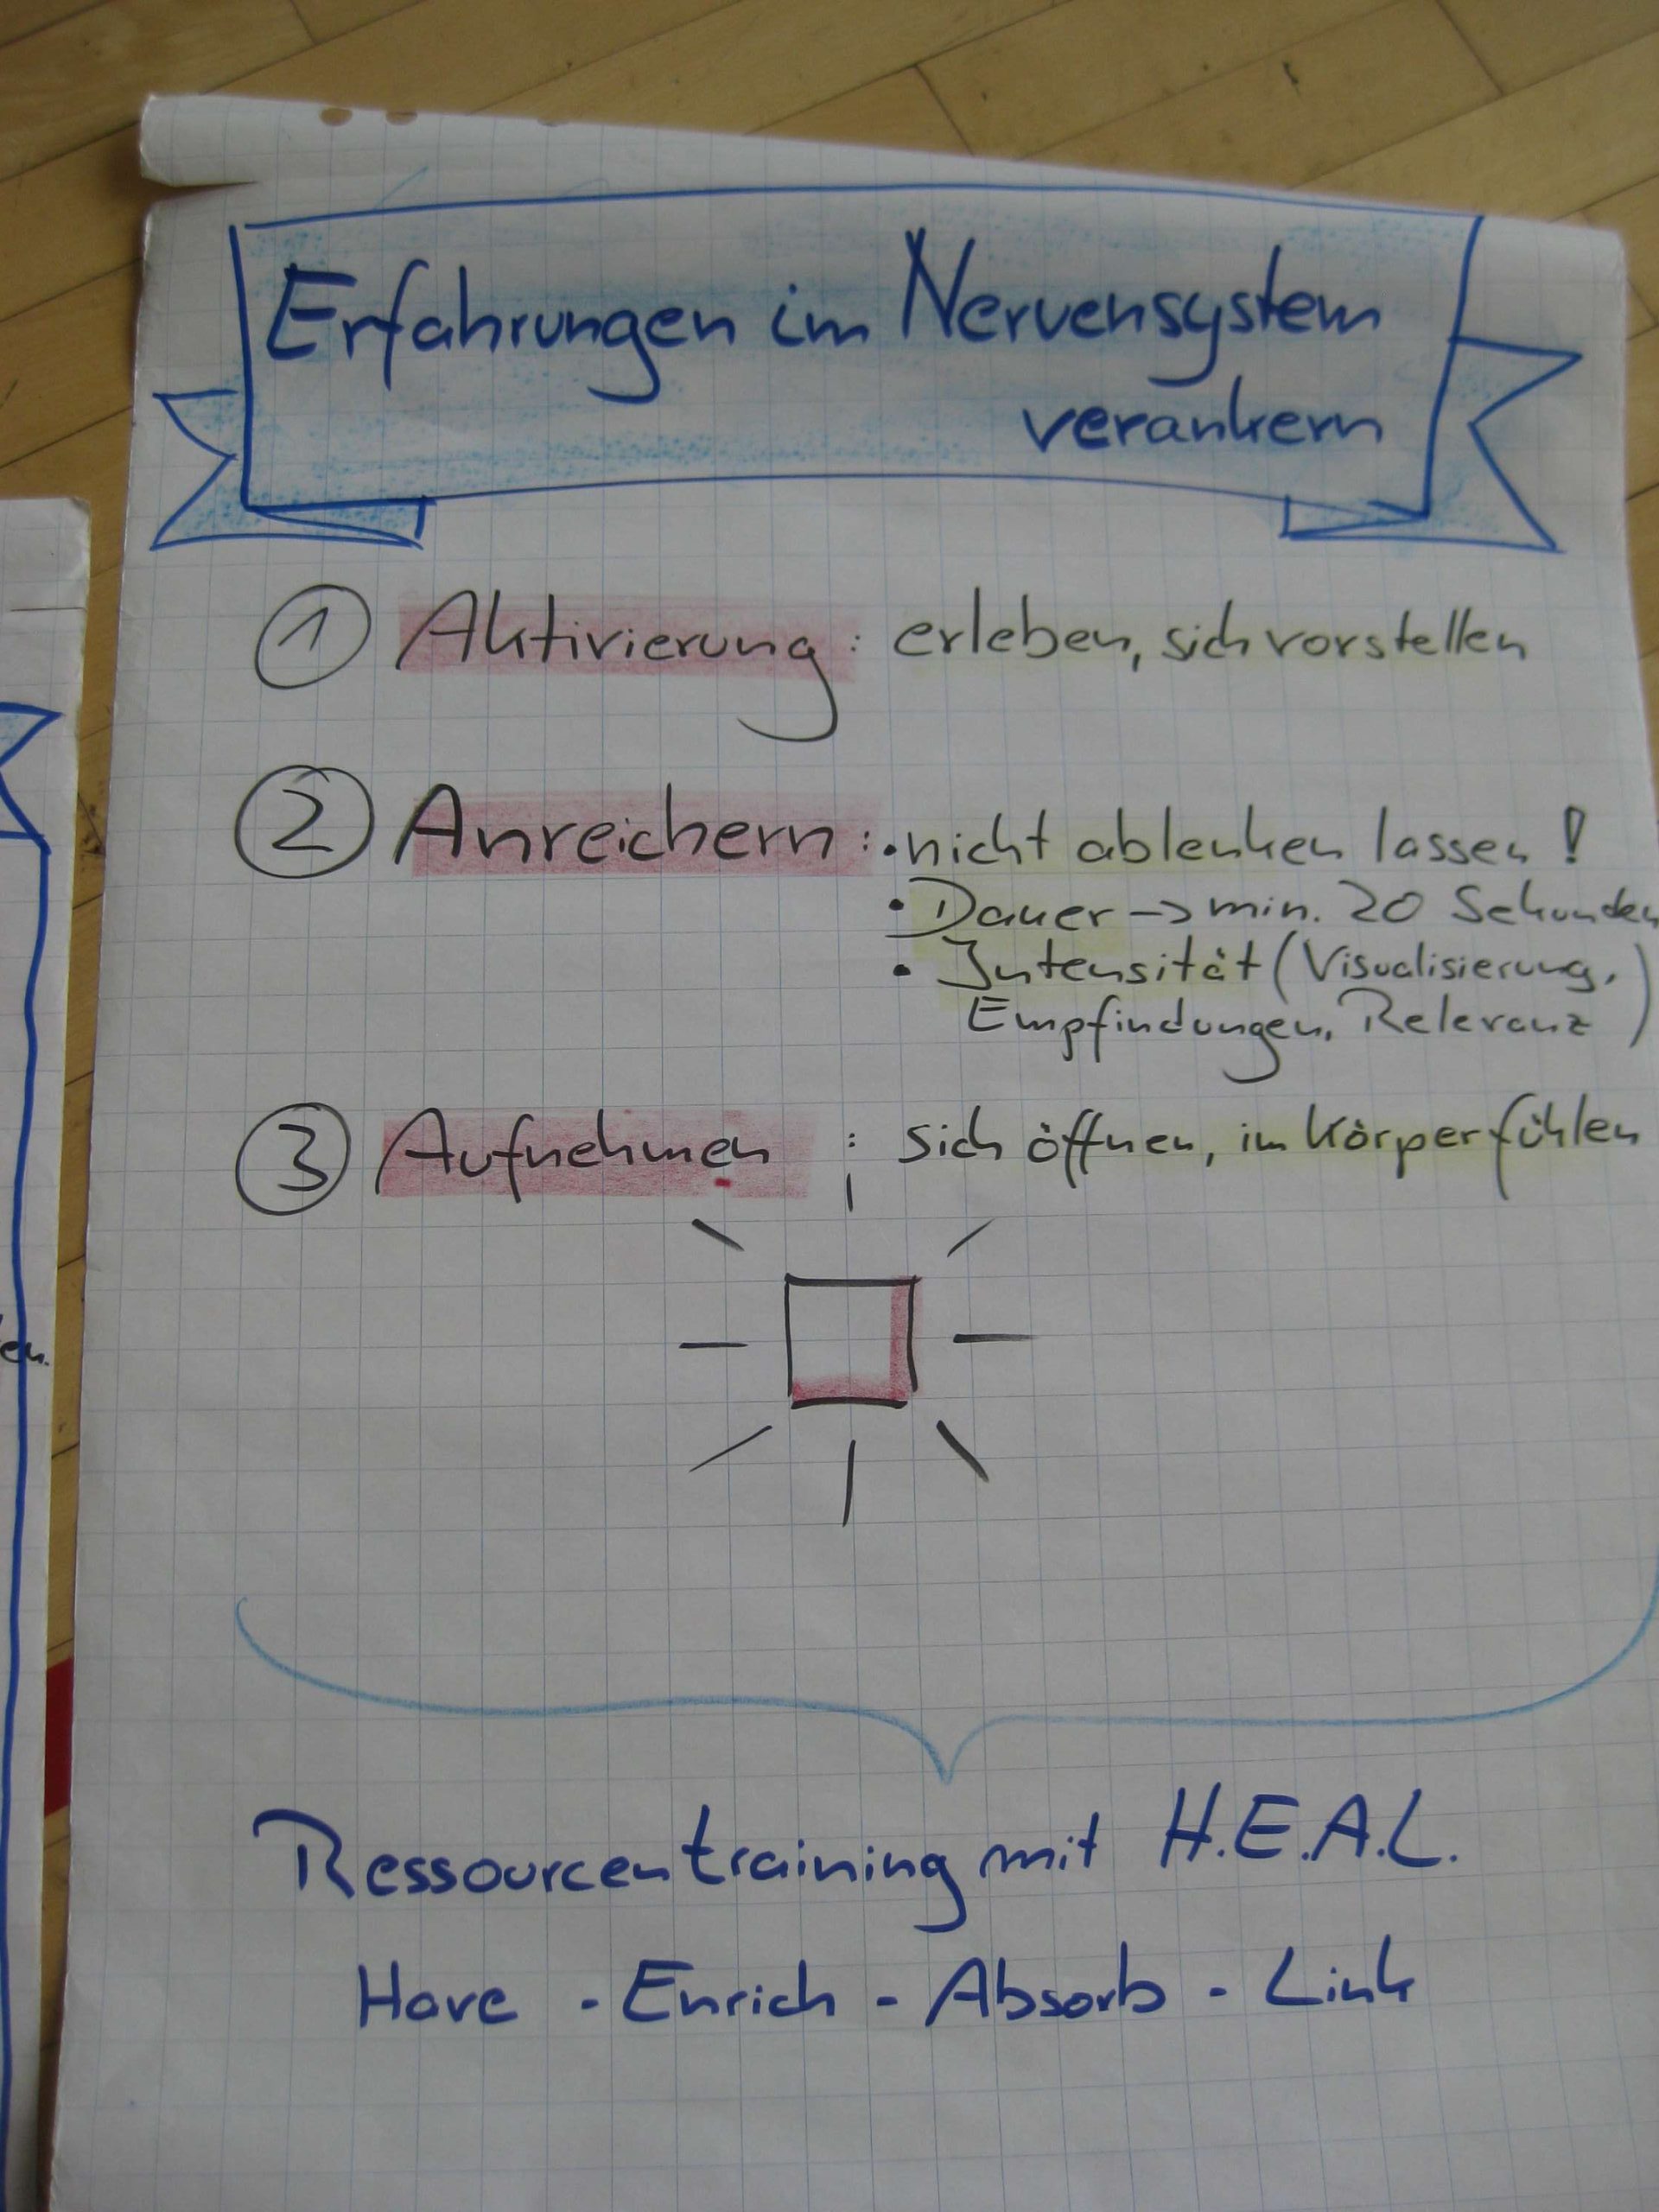 Erfahrungen im Nervensystem
verankern
① Aktivierung : erleben, sich vorstellen
② Anreichern : • nicht ablenken lassen !
• Dauer → min. 20 Sekunden
• Intensität (Visualisierung,
Empfindungen, Relevanz)
③ Aufnehmen : sich öffnen, im Körper fühlen
Ressourcentraining mit H.E.A.L.
Have - Enrich - Absorb - Link